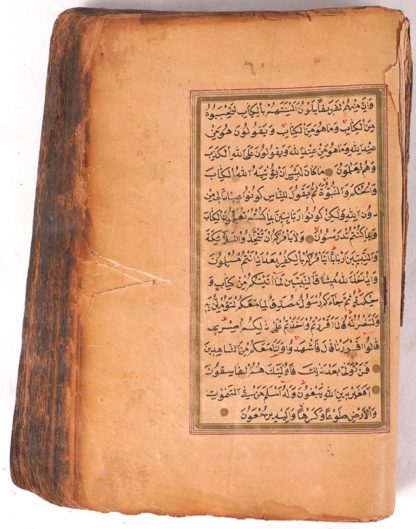 ٦٠
وَاِنَّ مِنْهُمْ لَفَرِيقًا يَلْوُنَ اَلْسِنَتَهُمْ بِالْكِتَابِ لِتَحْسَبُوهُ
مِنَ الْكِتَابِ وَمَا هُوَ مِنَ الْكِتَابِ وَيَقُولُونَ هُوَ مِنْ
عِنْدِ اللهِ وَمَا هُوَ مِنْ عِنْدِ اللهِ وَيَقُولُونَ عَلَى اللهِ الْكَذِبَ
وَهُمْ يَعْلَمُونَ مَا كَانَ لِبَشَرٍ اَنْ يُؤْتِيَهُ اللهُ الْكِتَابَ
وَالْحُكْمَ وَالنُّبُوَّةَ ثُمَّ يَقُولَ لِلنَّاسِ كُونُوا عِبَادًا لِى مِنْ
دُونِ اللهِ وَلٰكِنْ كُونُوا رَبَّانِيِّنَ بِمَا كُنْتُمْ تُعَلِّمُونَ الْكِتَابَ
وَبِمَا كُنْتُمْ تَدْرُسُونَ وَلَا يَاْمُرَكُمْ اَنْ تَتَّخِذُوا الْمَلٰئِكَةَ
وَالنَّبِيِّنَ اَرْبَابًا اَيَاْمُرُكُمْ بِالْكُفْرِ بَعْدَ اِذْ اَنْتُمْ مُسْلِمُونَ
وَاِذْ اَخَذَ اللهُ مِيثَاقَ النَّبِيِّنَ لَمَا اٰتَيْتُكُمْ مِنْ كِتَابٍ وَ
حِكْمَةٍ ثُمَّ جَاءَكُمْ رَسُولٌ مُصَدِّقٌ لِمَا مَعَكُمْ لَتُؤْمِنُنَّ بِهِ
وَلَتَنْصُرُنَّهُ قَالَ ءَاَقْرَرْتُمْ وَاَخَذْتُمْ عَلٰى ذٰلِكُمْ اِصْرِى
قَالُوا اَقْرَرْنَا قَالَ فَاشْهَدُوا وَاَنَا مَعَكُمْ مِنَ الشَّاهِدِينَ
فَمَنْ تَوَلّٰى بَعْدَ ذٰلِكَ فَاُولٰئِكَ هُمُ الْفَاسِقُونَ
اَفَغَيْرَ دِينِ اللهِ يَبْغُونَ وَلَهُ اَسْلَمَ مَنْ فِى السَّمٰوَاتِ
وَالْاَرْضِ طَوْعًا وَكَرْهًا وَاِلَيْهِ يُرْجَعُونَ